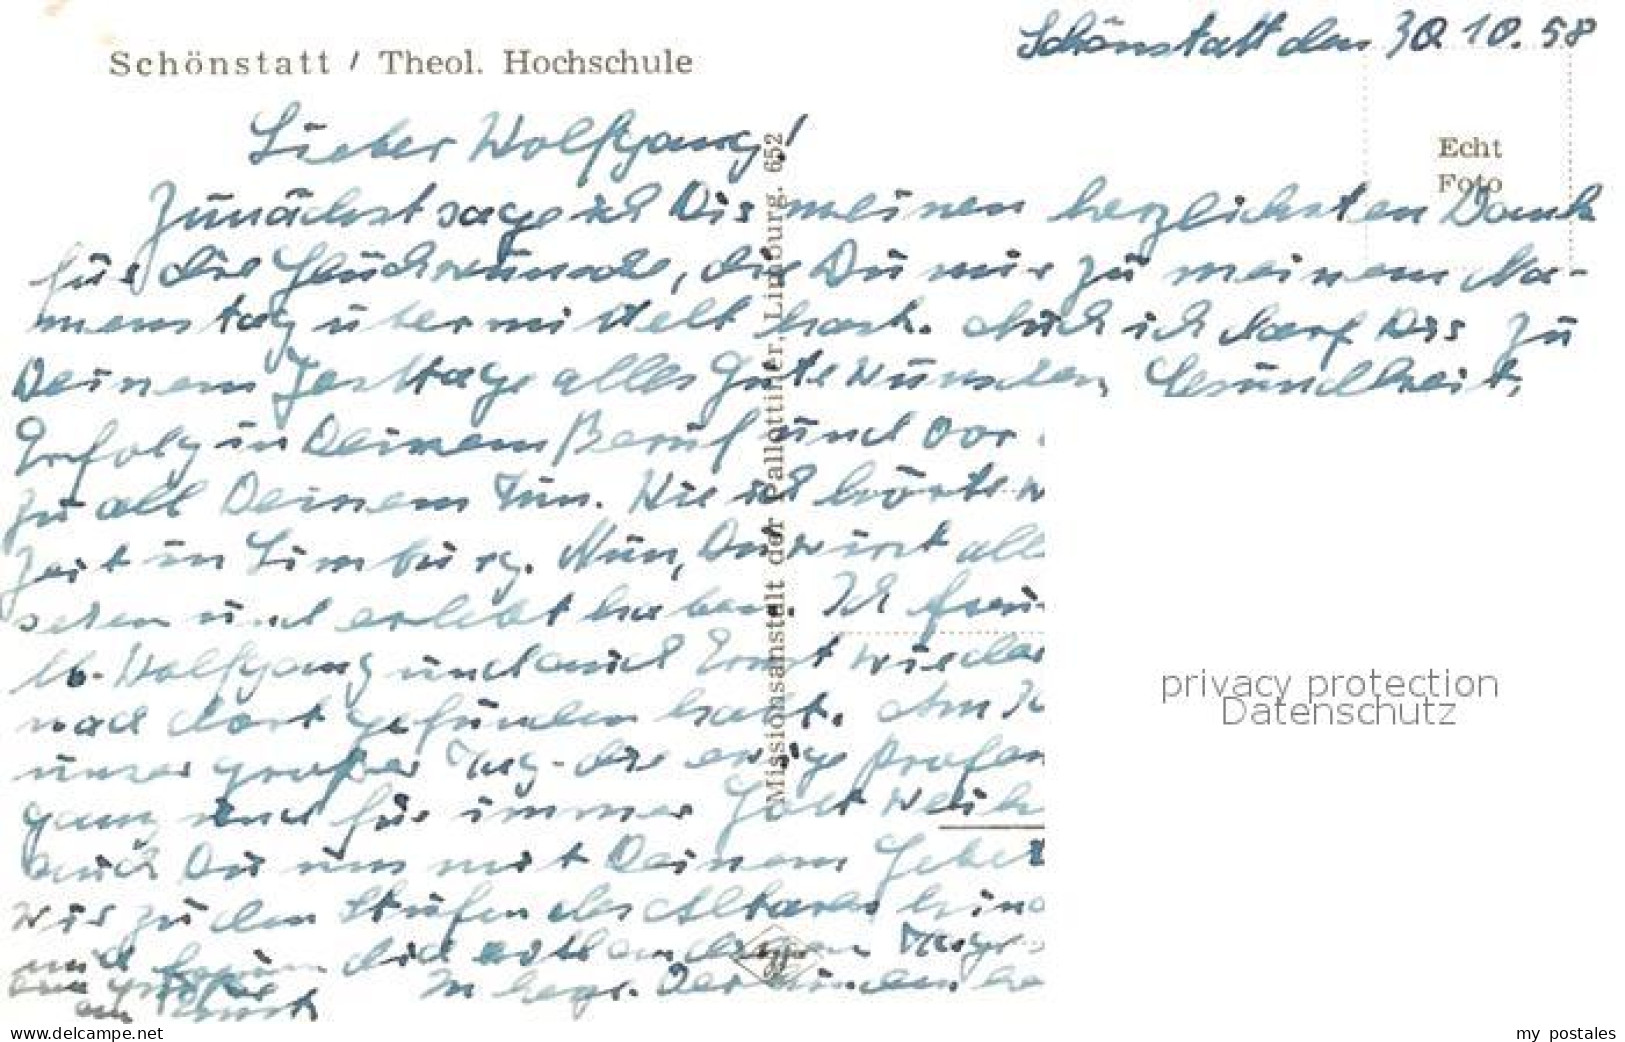 Schönstatt / Theol. Hochschule
Schönstatt den 30.10.58
Echt
Foto
Lieber Wolfgang!
Zunächst sage ich Dir meinen herzlichsten Dank
für die Glückwünsche, die Du mir zu meinem Na-
menstag übermittelt hast. Auch ich darf Dir zu
Deinem Festtage alles Gute wünschen, Gesundheit,
Erfolg in Deinem Beruf und vor
zu all Deinem Tun. Wie ich hörte w
Zeit in Limburg. Nun, Du wirst all
sehen und erlebt haben. Ich freu-
lb. Wolfgang und auch Ernst wieder
nach dort gefunden hast. Am
unser großer Tag - die ewige Profes
ganz und für immer Gott weih
auch Du uns mit Deinem Gebet
wir zu den Stufen des Altares hin
und
In herzl. Verbundenhe
Missionsanstalt der Pallottiner, Limburg. 652
privacy protection
Datenschutz
www.delcampe.net
my_postales